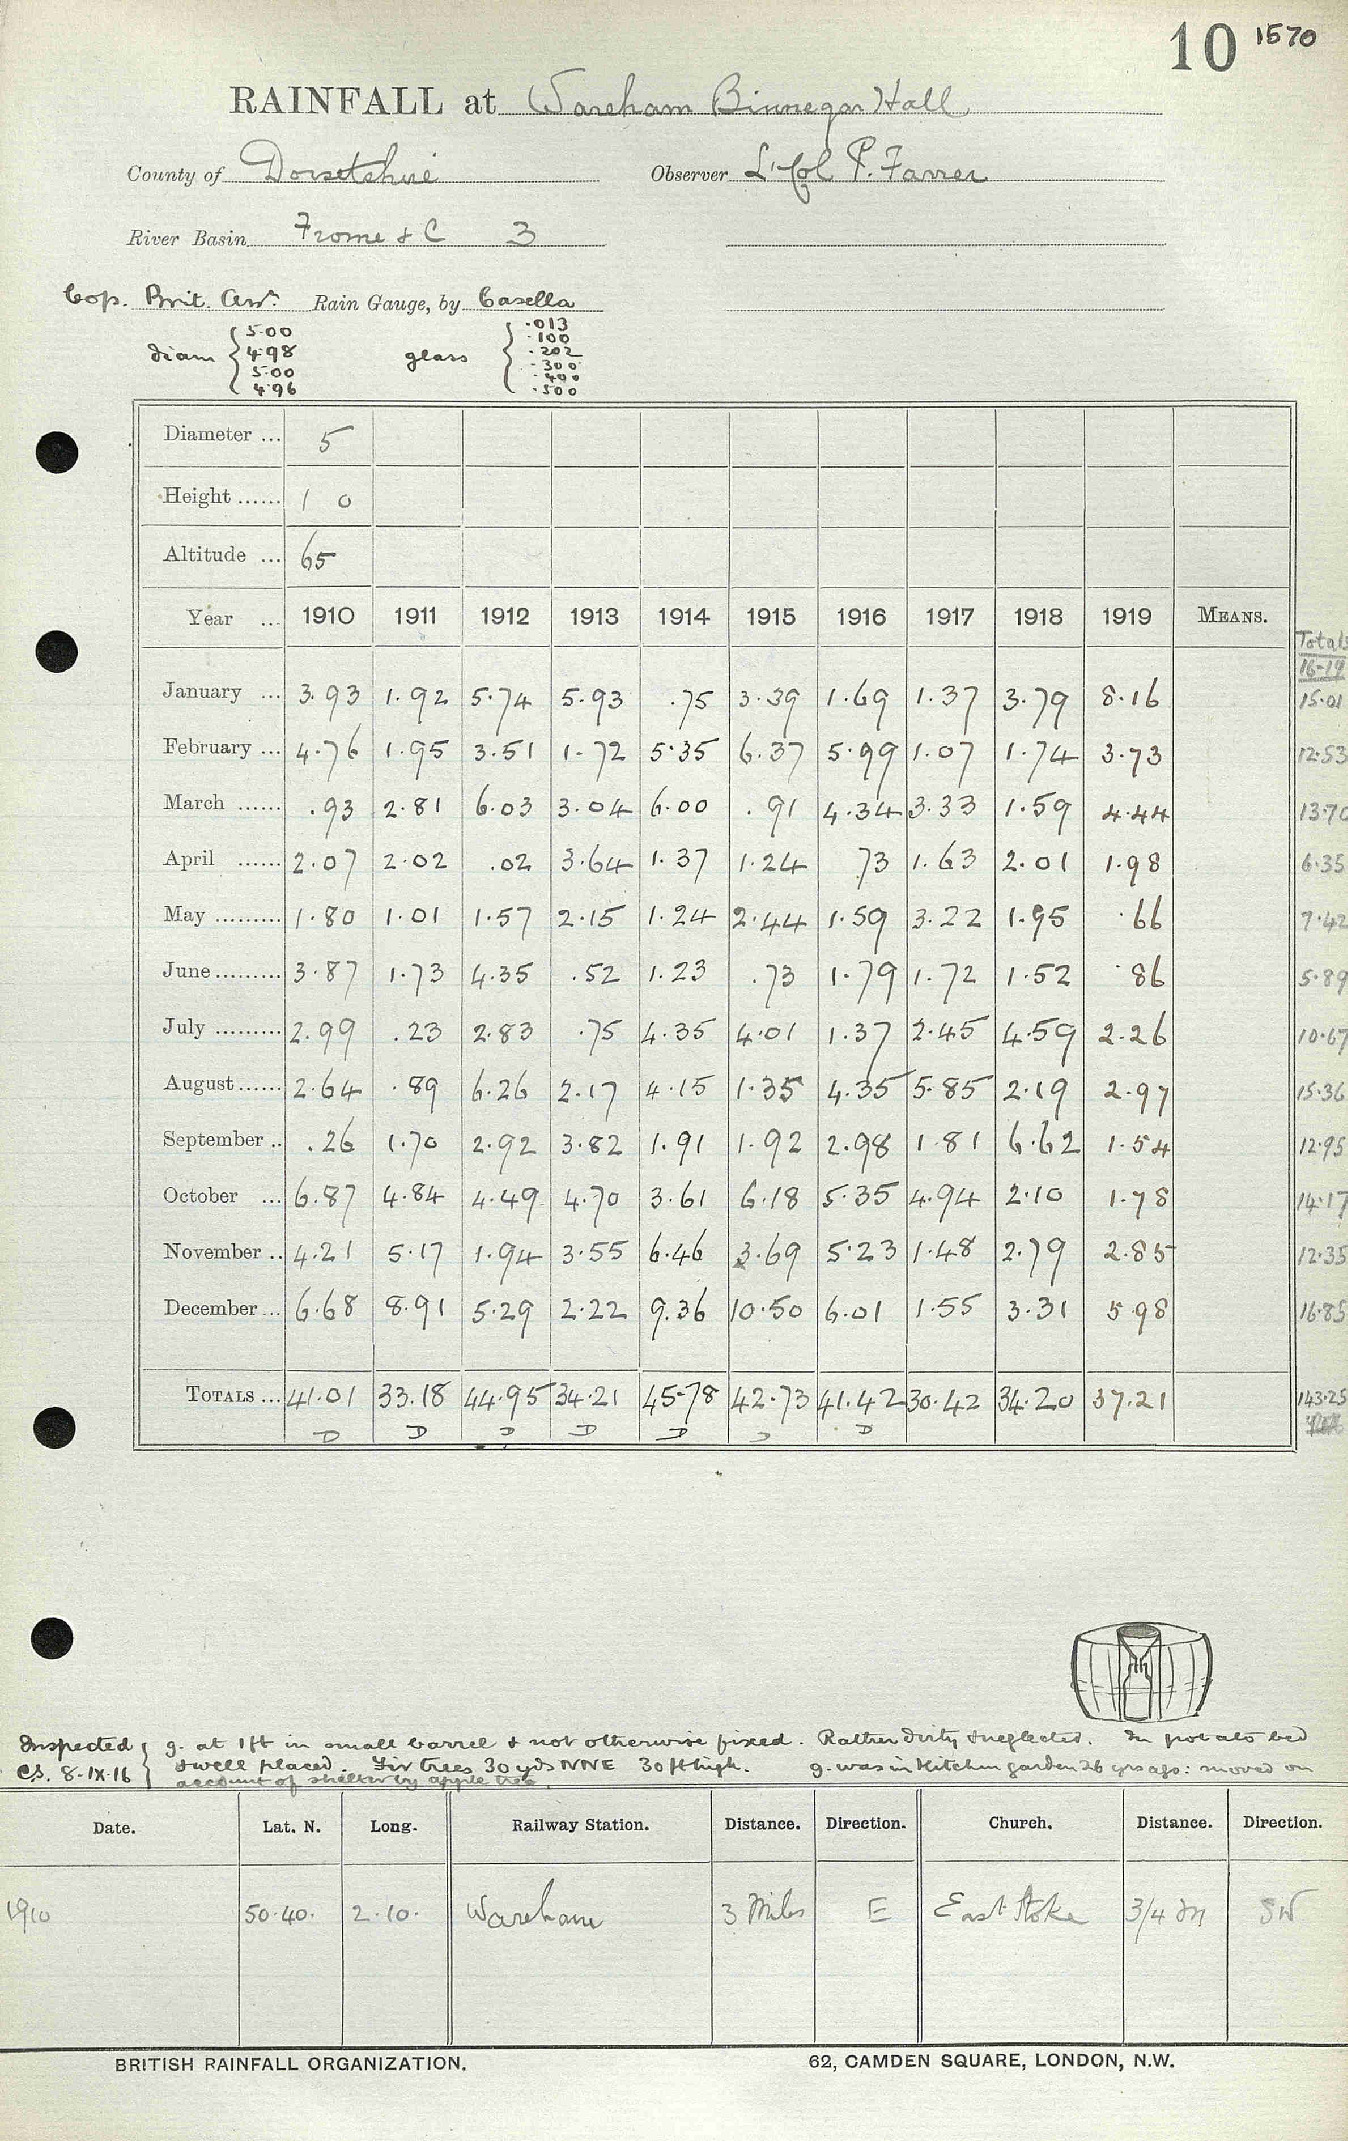 10 1570
RAINFALL at Wareham Binnegar Hall
County of Dorsetshire Observer Lt Col P. Farrer
River Basin Frome & C 3
Cop. Brit. Assn. Rain Gauge, by Casella
diam { 5.00 4.98 5.00 4.96 glass { .013 .100 .202 .300 .400 .500
Diameter ... 5
Height ...... 1 0
Altitude ... 65
Year ... 1910 1911 1912 1913 1914 1915 1916 1917 1918 1919 MEANS. Totals 16-19
January ... 3.93 1.92 5.74 5.93 .75 3.39 1.69 1.37 3.79 8.16 15.01
February ... 4.76 1.95 3.51 1.72 5.35 6.37 5.99 1.07 1.74 3.73 12.53
March ...... .93 2.81 6.03 3.04 6.00 .91 4.34 3.33 1.59 4.44 13.70
April ...... 2.07 2.02 .02 3.64 1.37 1.24 73 1.63 2.01 1.98 6.35
May ......... 1.80 1.01 1.57 2.15 1.24 2.44 1.59 3.22 1.95 .66 7.42
June ......... 3.87 1.73 4.35 .52 1.23 .73 1.79 1.72 1.52 .86 5.89
July ......... 2.99 .23 2.83 .75 4.35 4.01 1.37 2.45 4.59 2.26 10.67
August ...... 2.64 .89 6.26 2.17 4.15 1.35 4.35 5.85 2.19 2.97 15.36
September .. .26 1.70 2.92 3.82 1.91 1.92 2.98 1.81 6.62 1.54 12.95
October ... 6.87 4.84 4.49 4.70 3.61 6.18 5.35 4.94 2.10 1.78 14.17
November .. 4.21 5.17 1.94 3.55 6.46 3.69 5.23 1.48 2.79 2.85 12.35
December ... 6.68 8.91 5.29 2.22 9.36 10.50 6.01 1.55 3.31 5.98 16.85
TOTALS ... 41.01 33.18 44.95 34.21 45.78 42.73 41.42 30.42 34.20 37.21 143.25
D D D D D D D
Inspected { g. at 1ft in small barrel & not otherwise fixed. Rather dirty & neglected. In potato bed
C.S. 8.IX.16 { & well placed. Fir trees 30 yds NNE 30 ft high. g. was in Kitchen garden 26 yrs ago: moved on
account of shelter by apple tree.
Date. Lat. N. Long. Railway Station. Distance. Direction. Church. Distance. Direction.
1910 50.40. 2.10. Wareham 3 Miles E East Stoke 3/4 m SW
BRITISH RAINFALL ORGANIZATION. 62, CAMDEN SQUARE, LONDON, N.W.